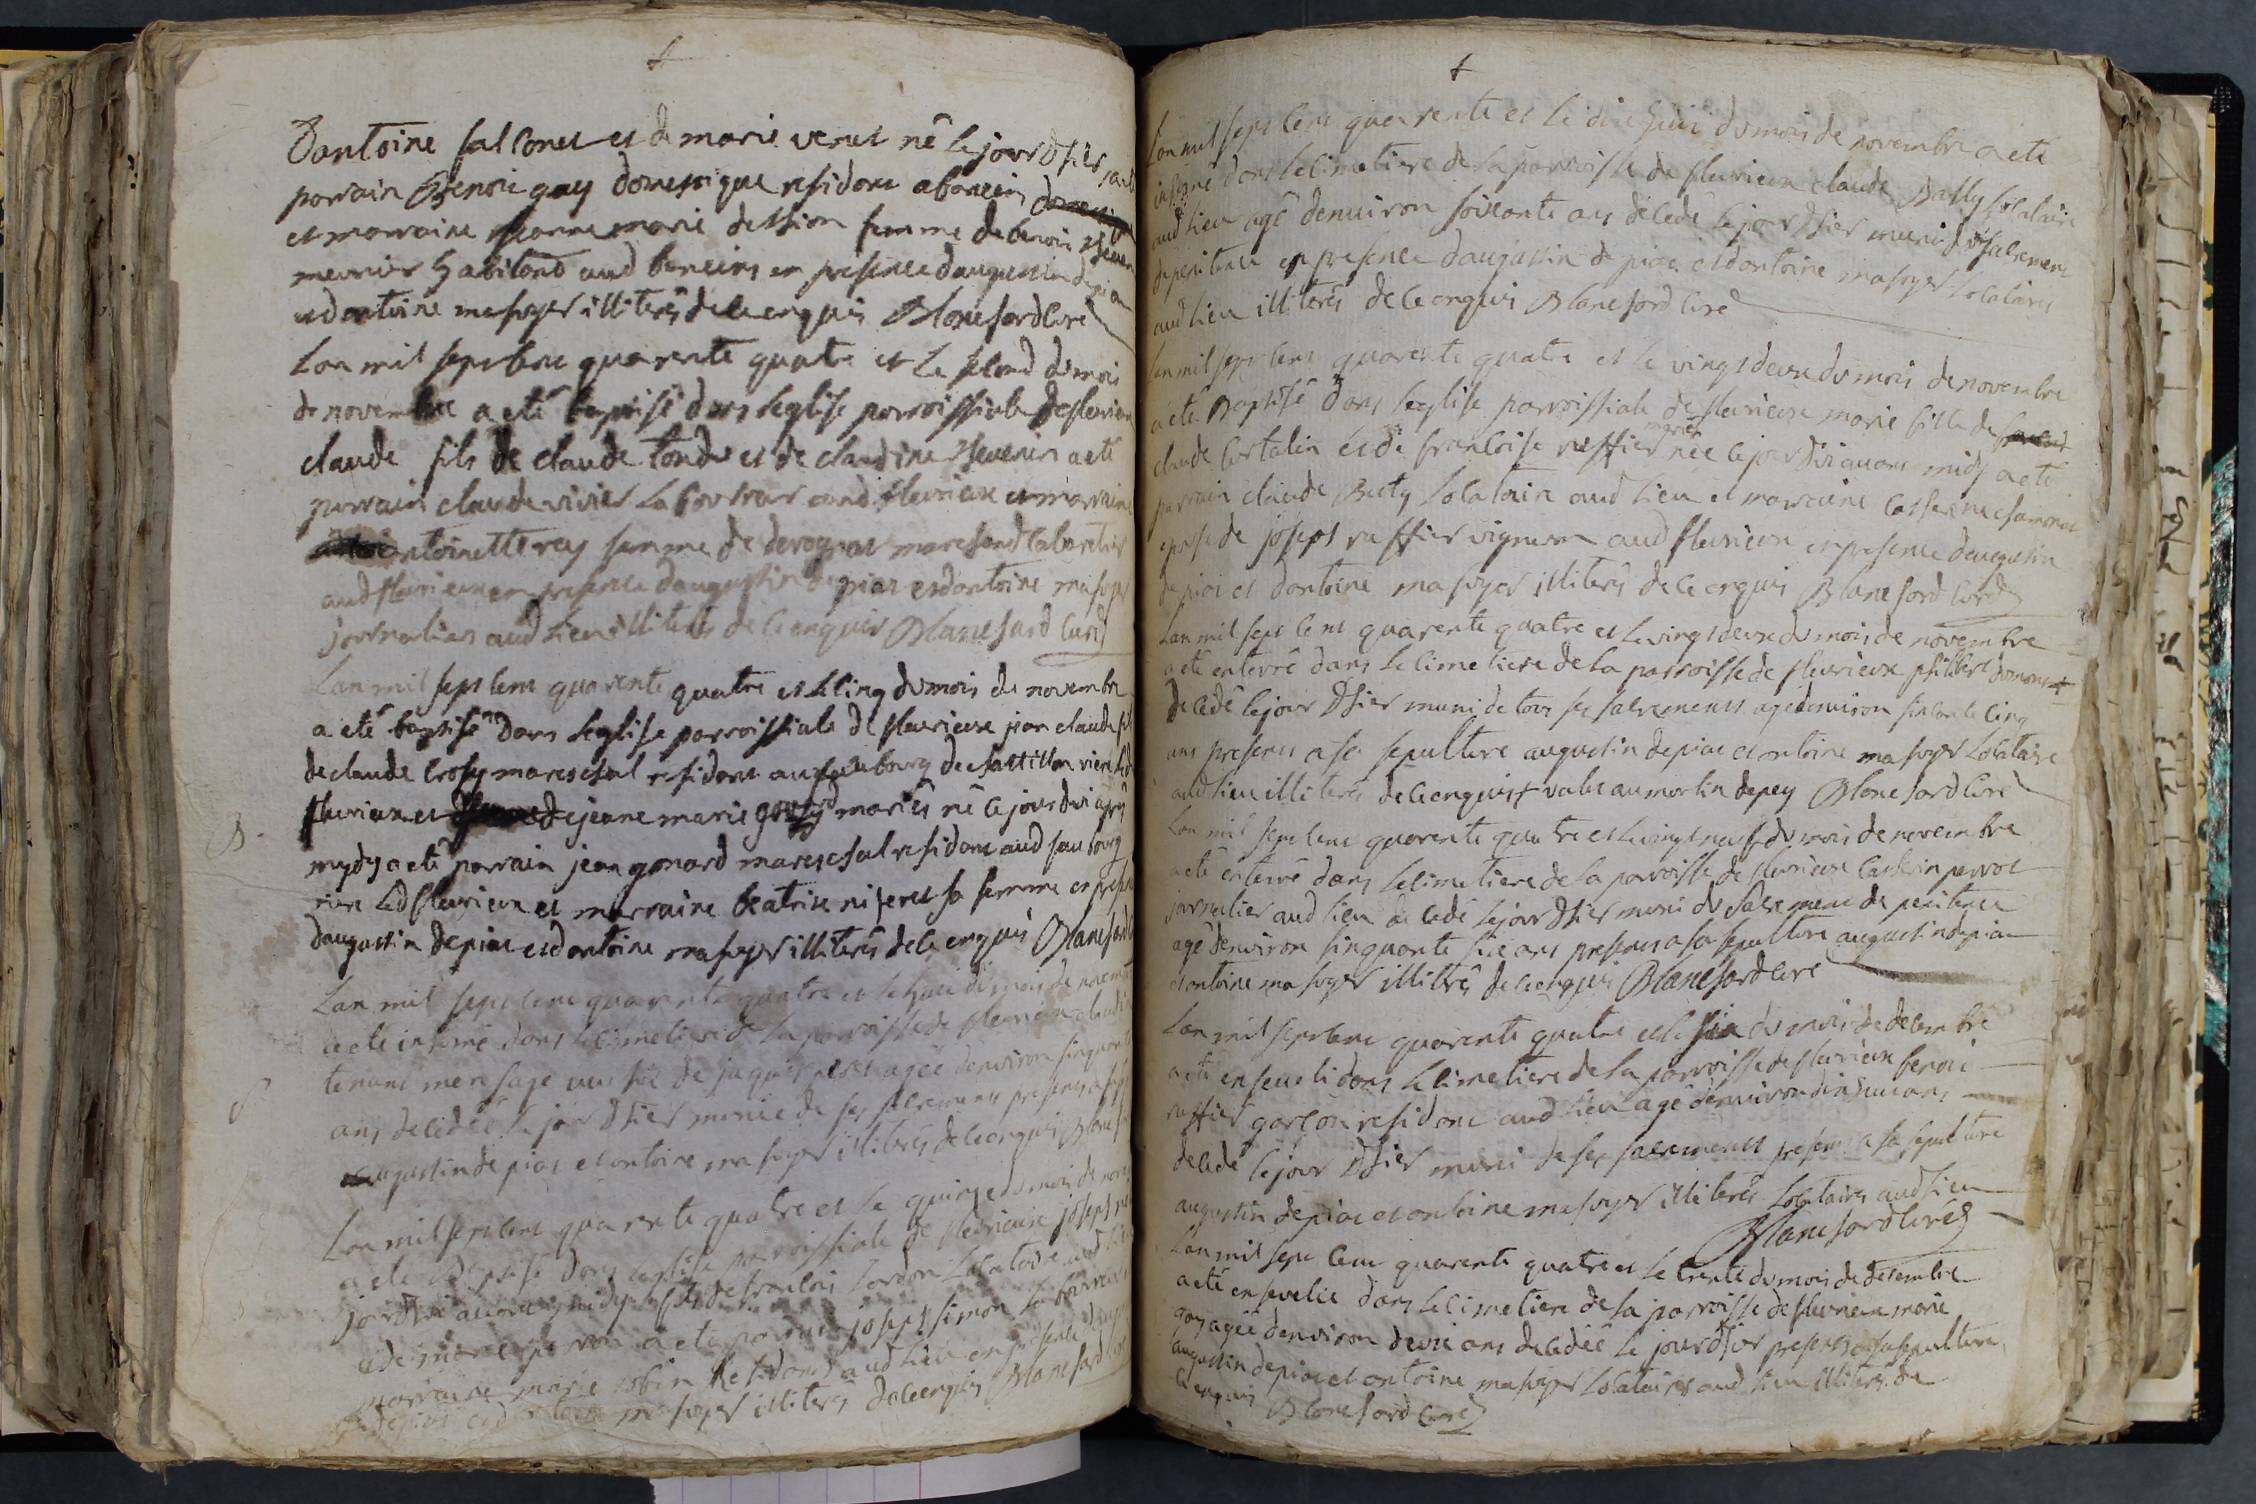 Dantoine falconet et de marie venet né le jour dhier
parrain Benoit guy domestique residant a baneins
et marraine jeanne marie dession femme de benoit
meunier habitans aud baneins en presence daugustin depiae
et dantoine masoyer illiterés de ce enquis Blanchard curé
Lan mil sept cent quarente quatre et le second du mois
de novembre a eté baptisé dans leglise parroissiale de fleurieux
claude fils de claude tondu et de claudine thevenin a eté
parrain claude vivier laboureur aud fleurieux et marraine
antoinette rey femme de marchand cabaretier
aud fleurieux en presence daugustin depiae et dantoine masoyer
journaliers aud lieu illiterés de ce enquis Blanchard curé
Lan mil sept cent quarente quatre et le cinq du mois de novembre
a eté baptisé dans leglise parroissiale de fleurieux jean claude fils
de claude crosy mareschal residant au faubourg de chattillon riere led
fleurieux et de jeanne marie mariés né le jourdui après
mydy a eté parrain jean gonard mareschal residant aud faubourg
riere led fleurieux et marraine beatrise niseret sa femme en presence
daugustin depiae et dantoine masoyer illiterés de ce enquis Blanchard
Lan mil sept cent quarente quatre et le huit du mois de novembre
a eté inhumé dans le cimetiere de la parroisse de fleurieux claudine
tenant veufve de jaques agée denviron cinquante
ans decedée le jour dhier munie de ses sacremens presens a sa sepulture
augustin depiae et antoine masoyer illiterés de ce enquis Blanchard
Lan mil sept cent quarente quatre et le quinze du mois de novembre
a eté Baptisé dans leglise parroissiale de fleurieux joseph né
jourdui avant midy fils de francois tardon locataire aud lieu
et de marie perron a eté parrain joseph simon laboureur
marraine marie robin residans aud lieu en presence daugustin
depiae et dantoine masoyer illiterés de ce enquis Blanchard curé
Lan mil sept cent quarente et le dix huit du mois de novembre a eté
inhumé dans le cimetiere de la parroisse de fleurieux claude Batty locataire
aud lieu agé denviron soixante ans decedé le jour dhier muni du sacrement
de penitence en presence daugustin depiae et dantoine masoyer locataires
aud lieu illiterés de ce enquis Blanchard curé
Lan mil sept cent quarente quatre et le vingt deux du mois de novembre
a eté Baptisé dans leglise parroissiale de fleurieux marie fille de
claude cortalin et de francoise ruffier mariés née le jourdui avant midy a eté
parrain claude Batty locataire aud lieu et marraine catherine chamonet
epouse de joseph ruffier vigneron aud fleurieux en presence daugustin
depiae et dantoine masoyer illiterés de ce enquis Blanchard curé
Lan mil sept cent quarente quatre et le vingt deux du mois de novembre
a eté enterré dans le cimetiere de la parroisse de fleurieux philibert dumont +
decedé le jour dhier muni de tous ses sacrements agé denviron soixante cinq
ans presents a sa sepulture augustin depiae et antoine masoyer locataire
aud lieu illiterés de ce enquis + valet au morlin depey Blanchard curé
Lan mil sept cent quarente quatre et le vingt neuf du mois de novembre
a eté enterré dans le cimetiere de la parroisse de fleurieux catherin perrot
journalier aud lieu decedé le jour dhier muni du sacrement de penitence
agé denviron cinquante six ans presents a sa sepulture augustin depiae
et antoine masoyer illiterés de ce enquis Blanchard curé
Lan mil sept cent quarente quatre et le six du mois de decembre
a eté enseveli dans le cimetiere de la parroisse de fleurieux benoit
ruffier garcon residant aud lieu agé denviron dix huit ans
decedé le jour dhier muni de ses sacrements presens a sa sepulture
augustin depiae et antoine masoyer illiterés locataires aud lieu
Blanchard curé
Lan mil sept cent quarente quatre et le trente du mois de decembre
a eté ensevelie dans le cimetiere de la parroisse de fleurieux marie
goy agée denviron deux ans decedée le jour dhier presens a sa sepulture
augustin depiae et antoine masoyer locataires aud lieu illiterés de
ce enquis Blanchard curé